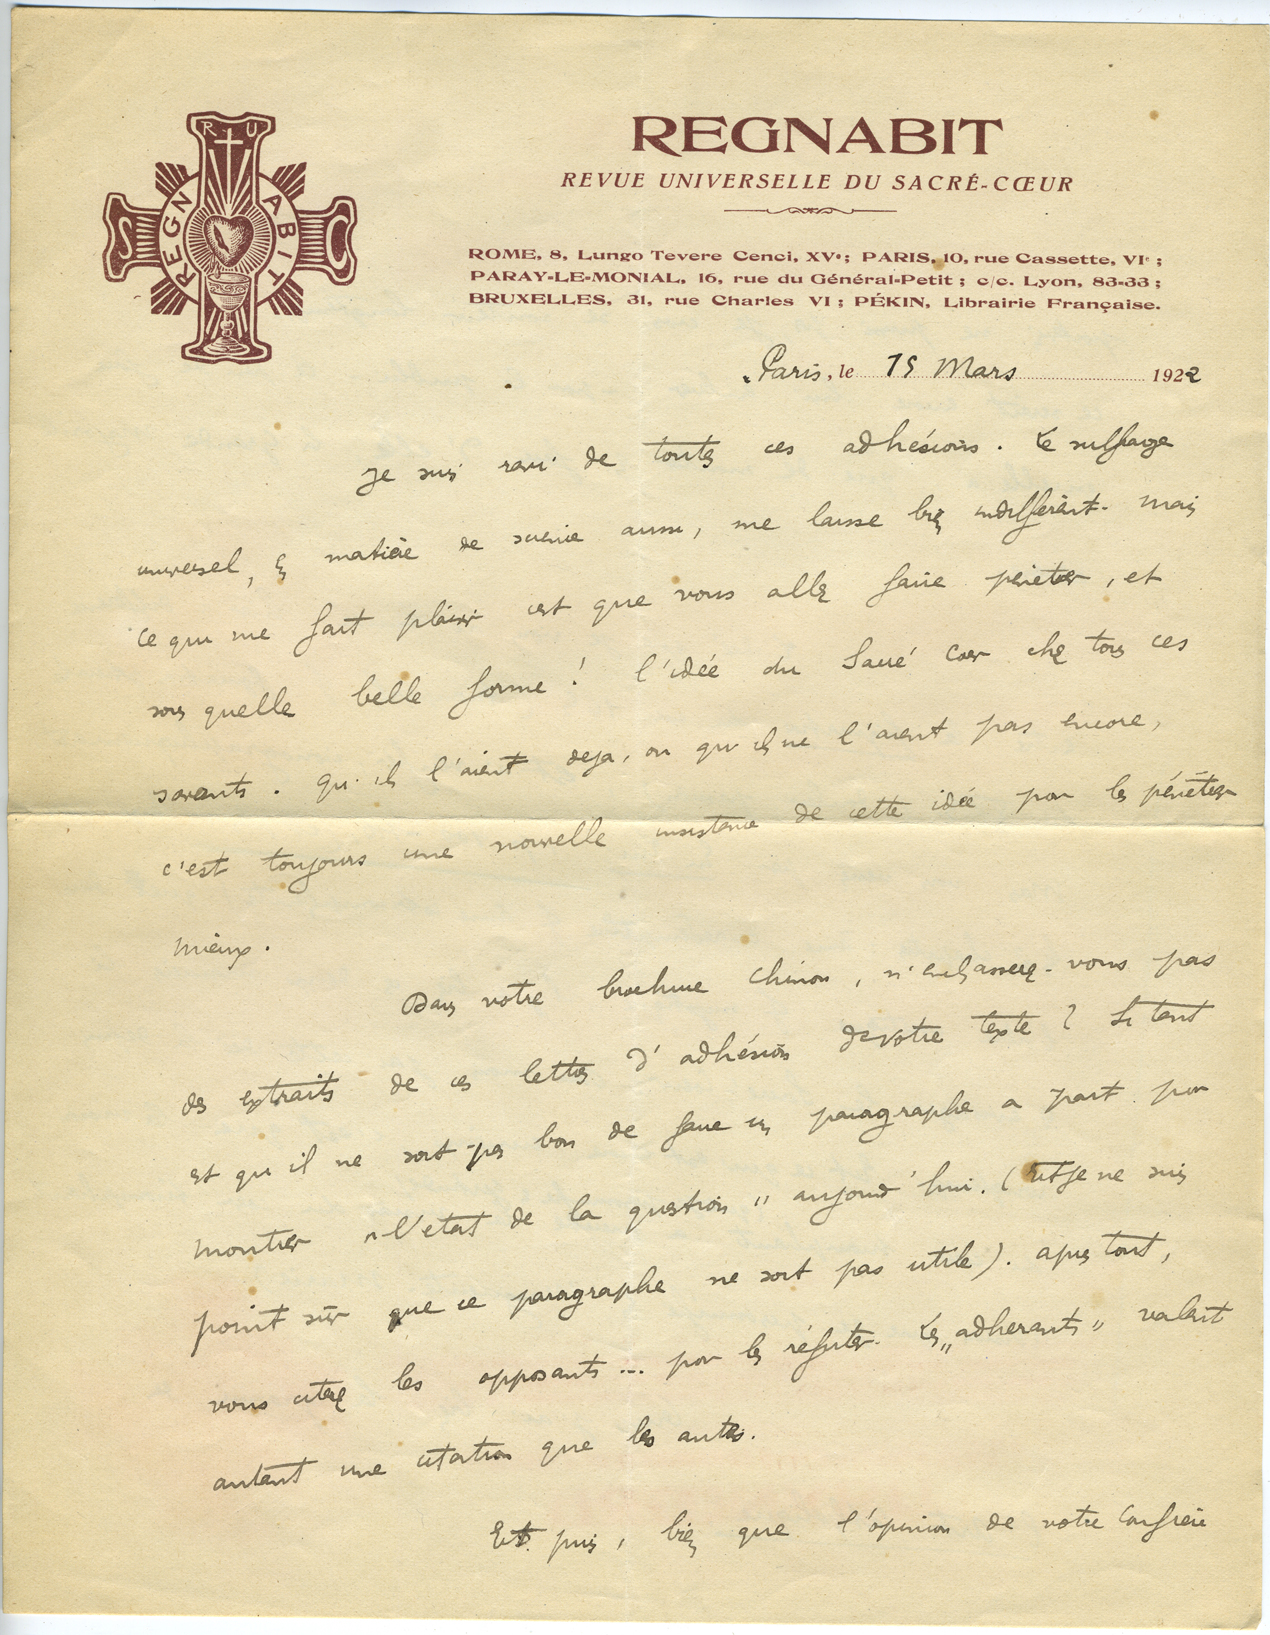 R U
REGNABIT
S C
REGNABIT
REVUE UNIVERSELLE DU SACRÉ-CŒUR
ROME, 8, Lungo Tevere Cenci, XVe ; PARIS, 10, rue Cassette, VIe ;
PARAY-LE-MONIAL, 16, rue du Général-Petit ; c/c. Lyon, 83-33 ;
BRUXELLES, 31, rue Charles VI ; PÉKIN, Librairie Française.
Paris, le 15 Mars 1922
Je suis ravi de toutes ces adhésions. Le suffrage
universel, en matière de science aussi, me laisse bien indifférent. Mais
ce qui me fait plaisir c'est que vous allez faire pénétrer, et
sous quelle belle forme ! l'idée du Sacré Cœur chez tous ces
savants. Qu'ils l'aient deja, ou qu'ils ne l'aient pas encore,
c'est toujours une nouvelle insistance de cette idée pour les pénétrer
mieux.
Dans votre brochure Chinon, n'enchasserez-vous pas
des extraits de ces lettres d'adhésion de votre texte ? Si tant
est qu'il ne soit pas bon de faire un paragraphe a part pour
montrer "l'etat de la question" aujourd'hui. (Et je ne suis
point sûr que ce paragraphe ne soit pas utile). Apres tout,
vous citerez les opposants... pour les réfuter. Les "adherants" valent
autant une citation que les autres.
Et puis, bien que l'opinion de votre Confrère